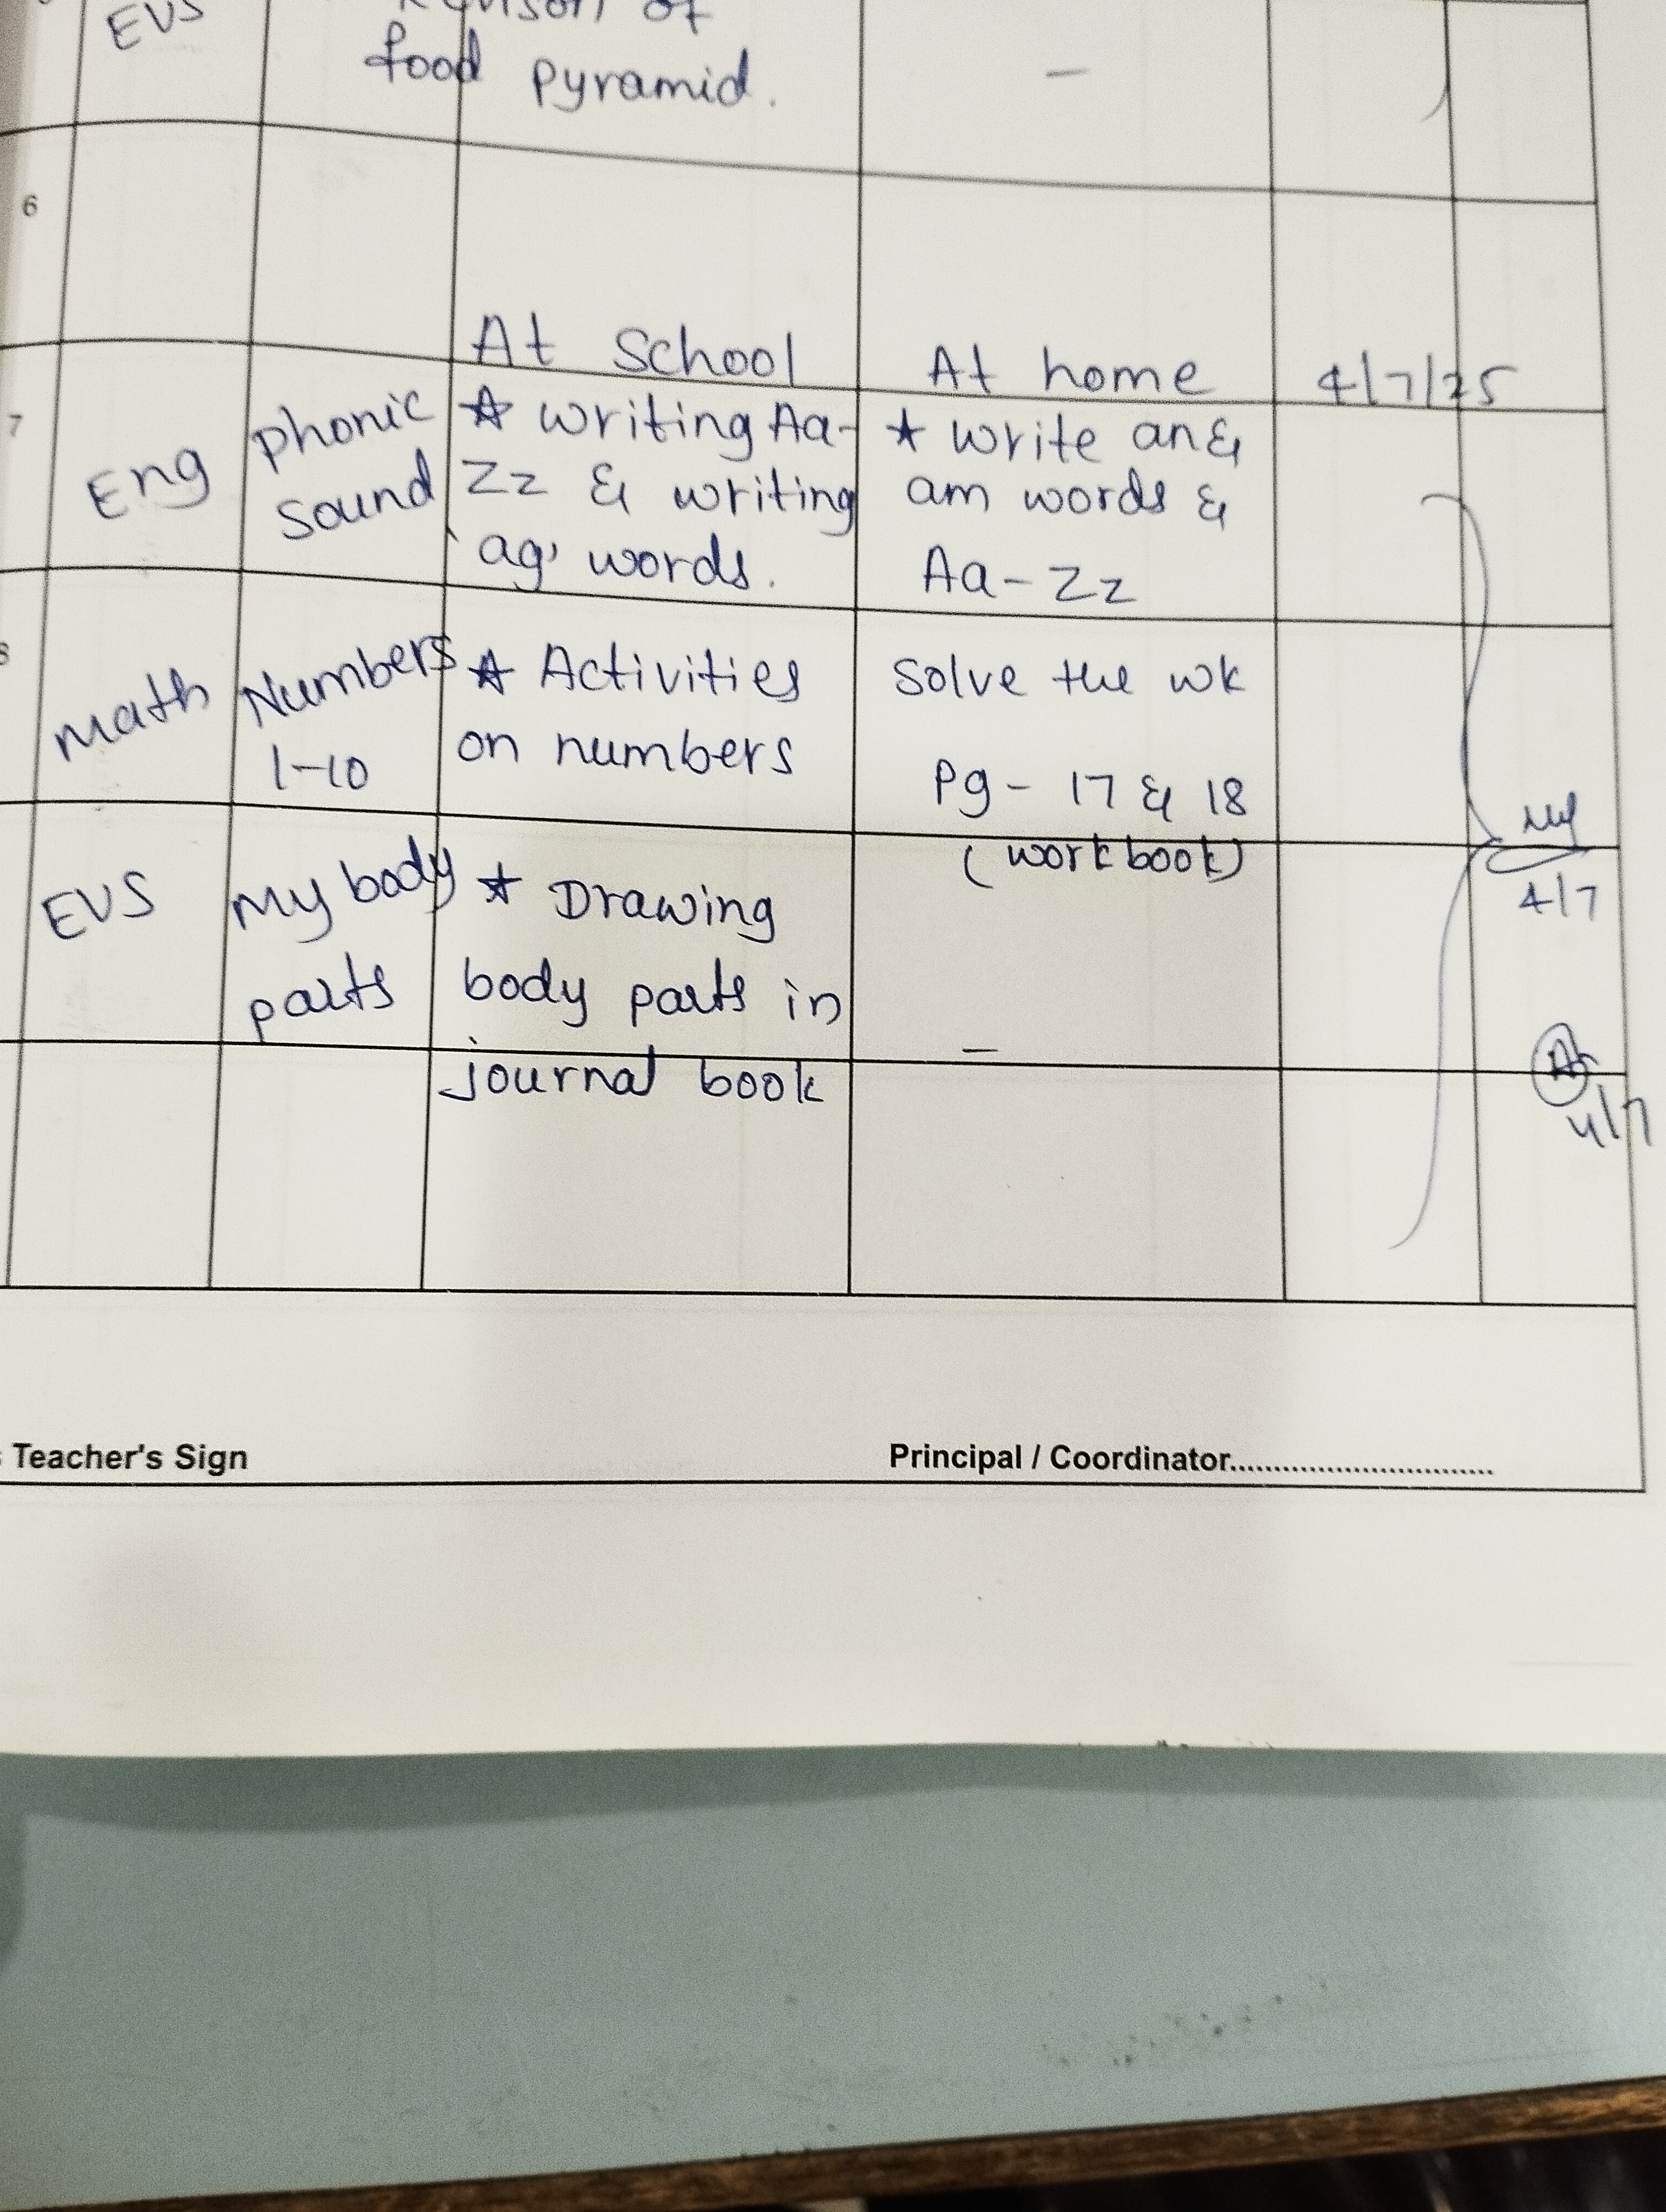 EVS
of
food pyramid.
–
6
At School
At home
4/7/25
7
Eng
phonic
sound
☆ writing Aa-
Zz & writing
'ag' words.
★ write an &
am words &
Aa - Zz
math
Numbers
1-10
☆ Activities
on numbers
Solve the wk
Pg - 17 & 18
(workbook)
4/7
EVS
My body
parts
☆ Drawing
body parts in
journal book
–
4/7
Teacher's Sign
Principal / Coordinator..............................